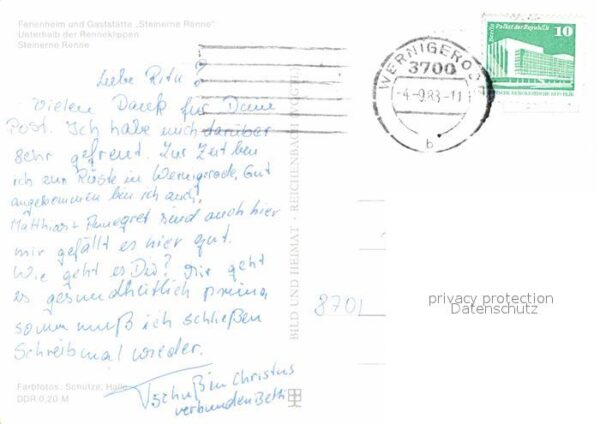 Ferienheim und Gaststätte „Steinerne Renne"
Unterhalb der Renneklippen
Steinerne Renne
Liebe Rita!
Vielen Dank für Deine
Post. Ich habe mich darüber
sehr gefreut. Zur Zeit bin
ich zur Rüste in Wernigerode. Gut
angekommen bin ich auch.
Matthias + Annegret sind auch hier
mir gefällt es hier gut.
Wie geht es Dir? Mir geht
es gesundheitlich prima
somm muß ich schließen
Schreib mal wieder.
Tschuß in Christus
verbunden Beth
Farbfotos: Schulze, Halle
DDR 0,20 M
BILD UND HEIMAT · REICHENBACH
WERNIGERODE
3700
-4-9.83-11
b
Berlin Palast der Republik
10
DEUTSCHE DEMOKRATISCHE REPUBLIK
8701
privacy protection
Datenschutz